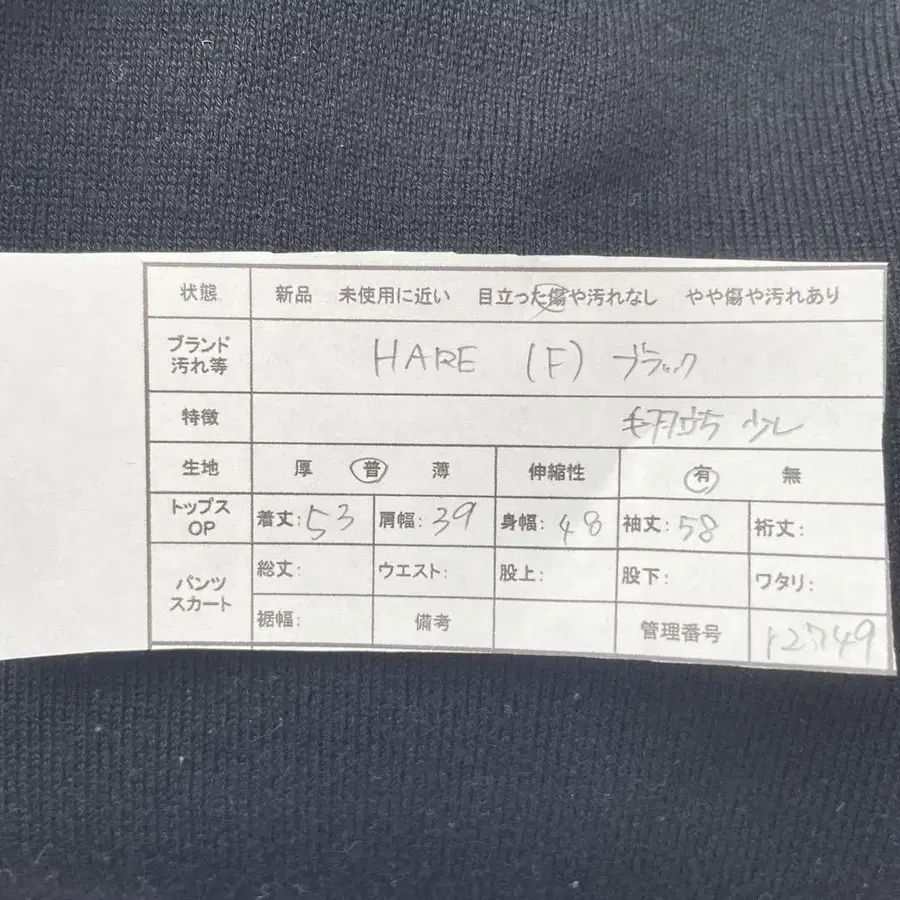 状態 新品 未使用に近い 目立った傷や汚れなし やや傷や汚れあり
ブランド
汚れ等 HARE (F) ブラック
特徴 毛羽立ち 少し
生地 厚 普 薄 伸縮性 有 無
トップス
OP 着丈:53 肩幅:39 身幅:48 袖丈:58 裄丈:
パンツ
スカート 総丈: ウエスト: 股上: 股下: ワタリ:
裾幅: 備考 管理番号 12749